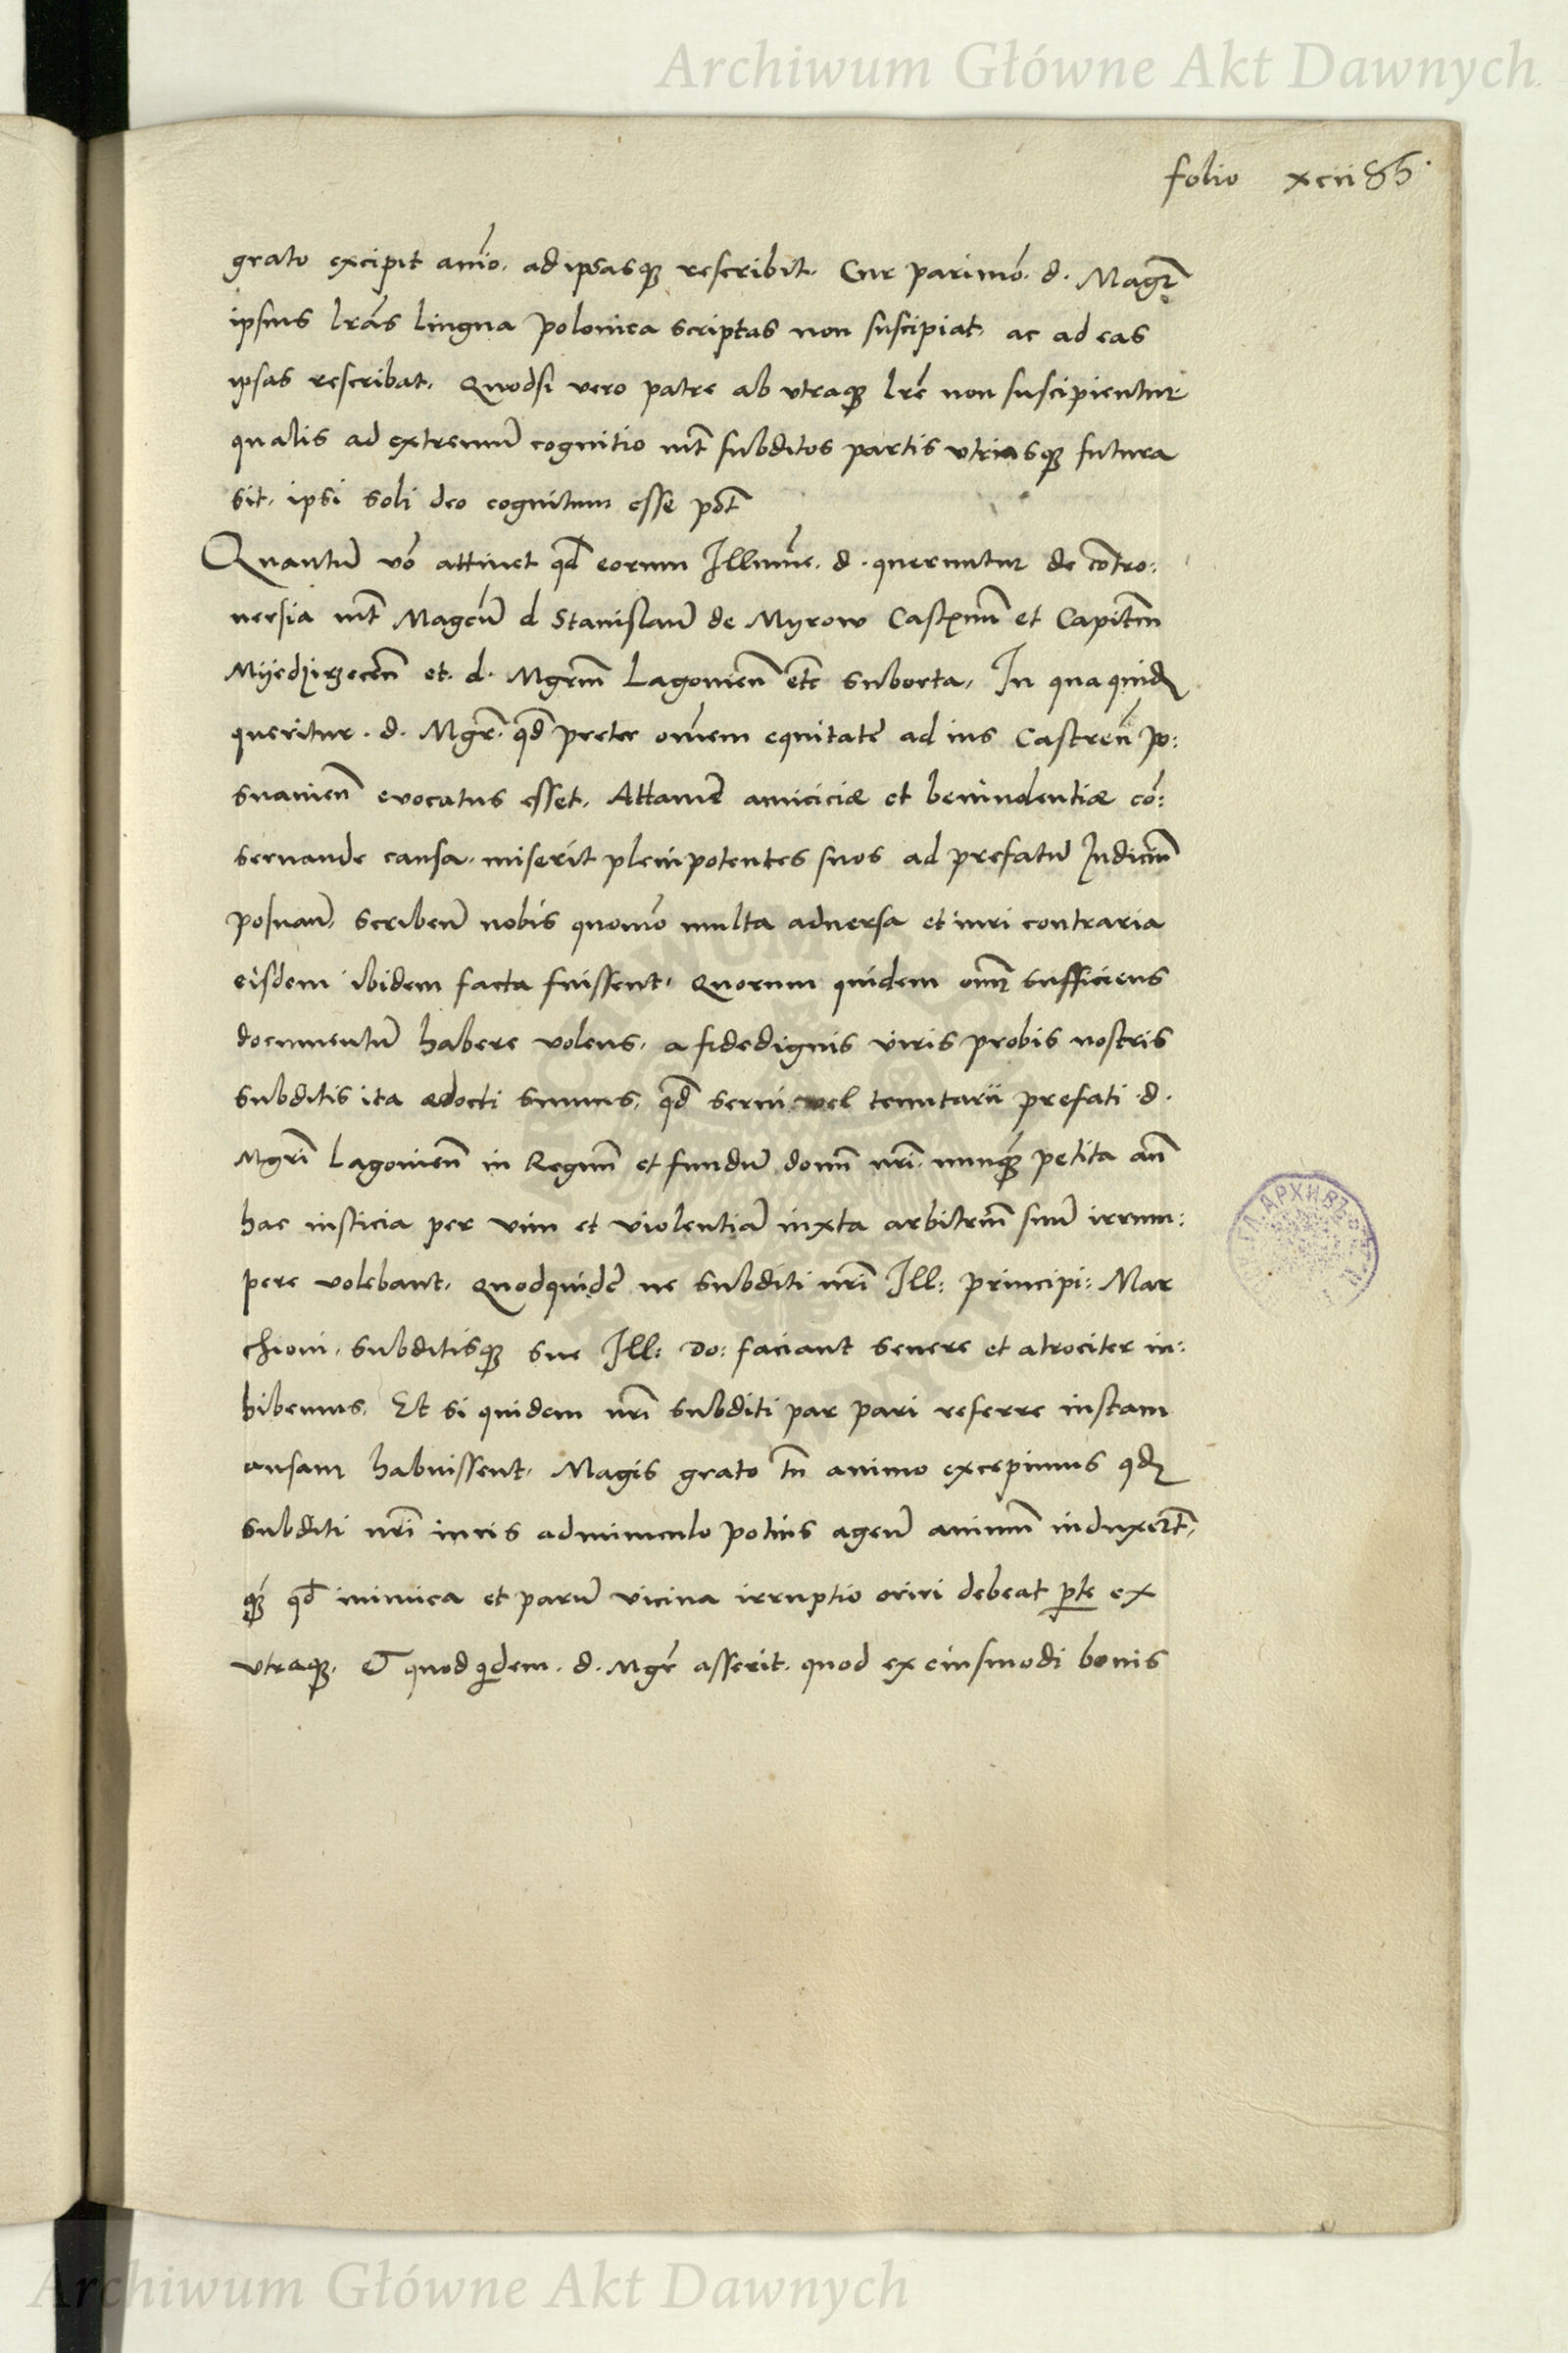 Archiwum Główne Akt Dawnych
folio xcii
grato excipit animo. ad ipsasqꝫ rescribit. Cur parimo. d. Magr
ipsius lras lingua polonica scriptas non suscipiat. ac ad eas
ipsas rescribat. Quodsi vero patre ab vtraqꝫ lre non suscipientur
qualis ad extremū cognitio int subditos partis vtriasqꝫ futura
sit. ipsi soli deo cognitum esse pōt
Quantū vō attinet qd eorum Illume. d. queruntur de contro:
uersia int Magcū d Stanislaū de Myrow Castnum et Capitm
Myedzirzecen et. d. Mgrm Lagouien etc suborta. In qua quidē
queritur. d. Mgr. qd preter omem equitatē ad ius Castren po:
snanien evocatus esset. Attamē amiciciæ et beniuolentiæ cō:
seruande causa. miserit plenipotentes suos ad prefatū Iudicium
posnan. scribeñ nobis quomō multa aduersa et iuri contraria
eisdem ibidem facta fuissent. Quorum quidem omn sufficiens
documentū habere volens. a fidedignis viris probis nostris
subditis ita edocti sumus. qd serui vel tenutarii prefati d.
Mgri Lagouien in Regnum et fundū domn nri. nunqꝫ petita an
hac iusticia per vim et violentiā iuxta arbitrium suū irrum:
pere volebant. Quodquidē ne subditi nri Ill: principi: Mar
chioni. subditisqꝫ sue Ill: Do: faciant seuere et atrociter in:
hibemus. Et si quidem nri subditi par pari referre iustam
ansam habuissent. Magis grato tn animo excepimus qd
subditi nri iuris adminiculo potius ageñ animum induxert.
qꝫ qd inimica et parū vicina irruptio oriri debeat pte ex
vtraqꝫ. Et quod quidem. d. Mgr asserit. quod ex eiusmodi bonis
Archiwum Główne Akt Dawnych